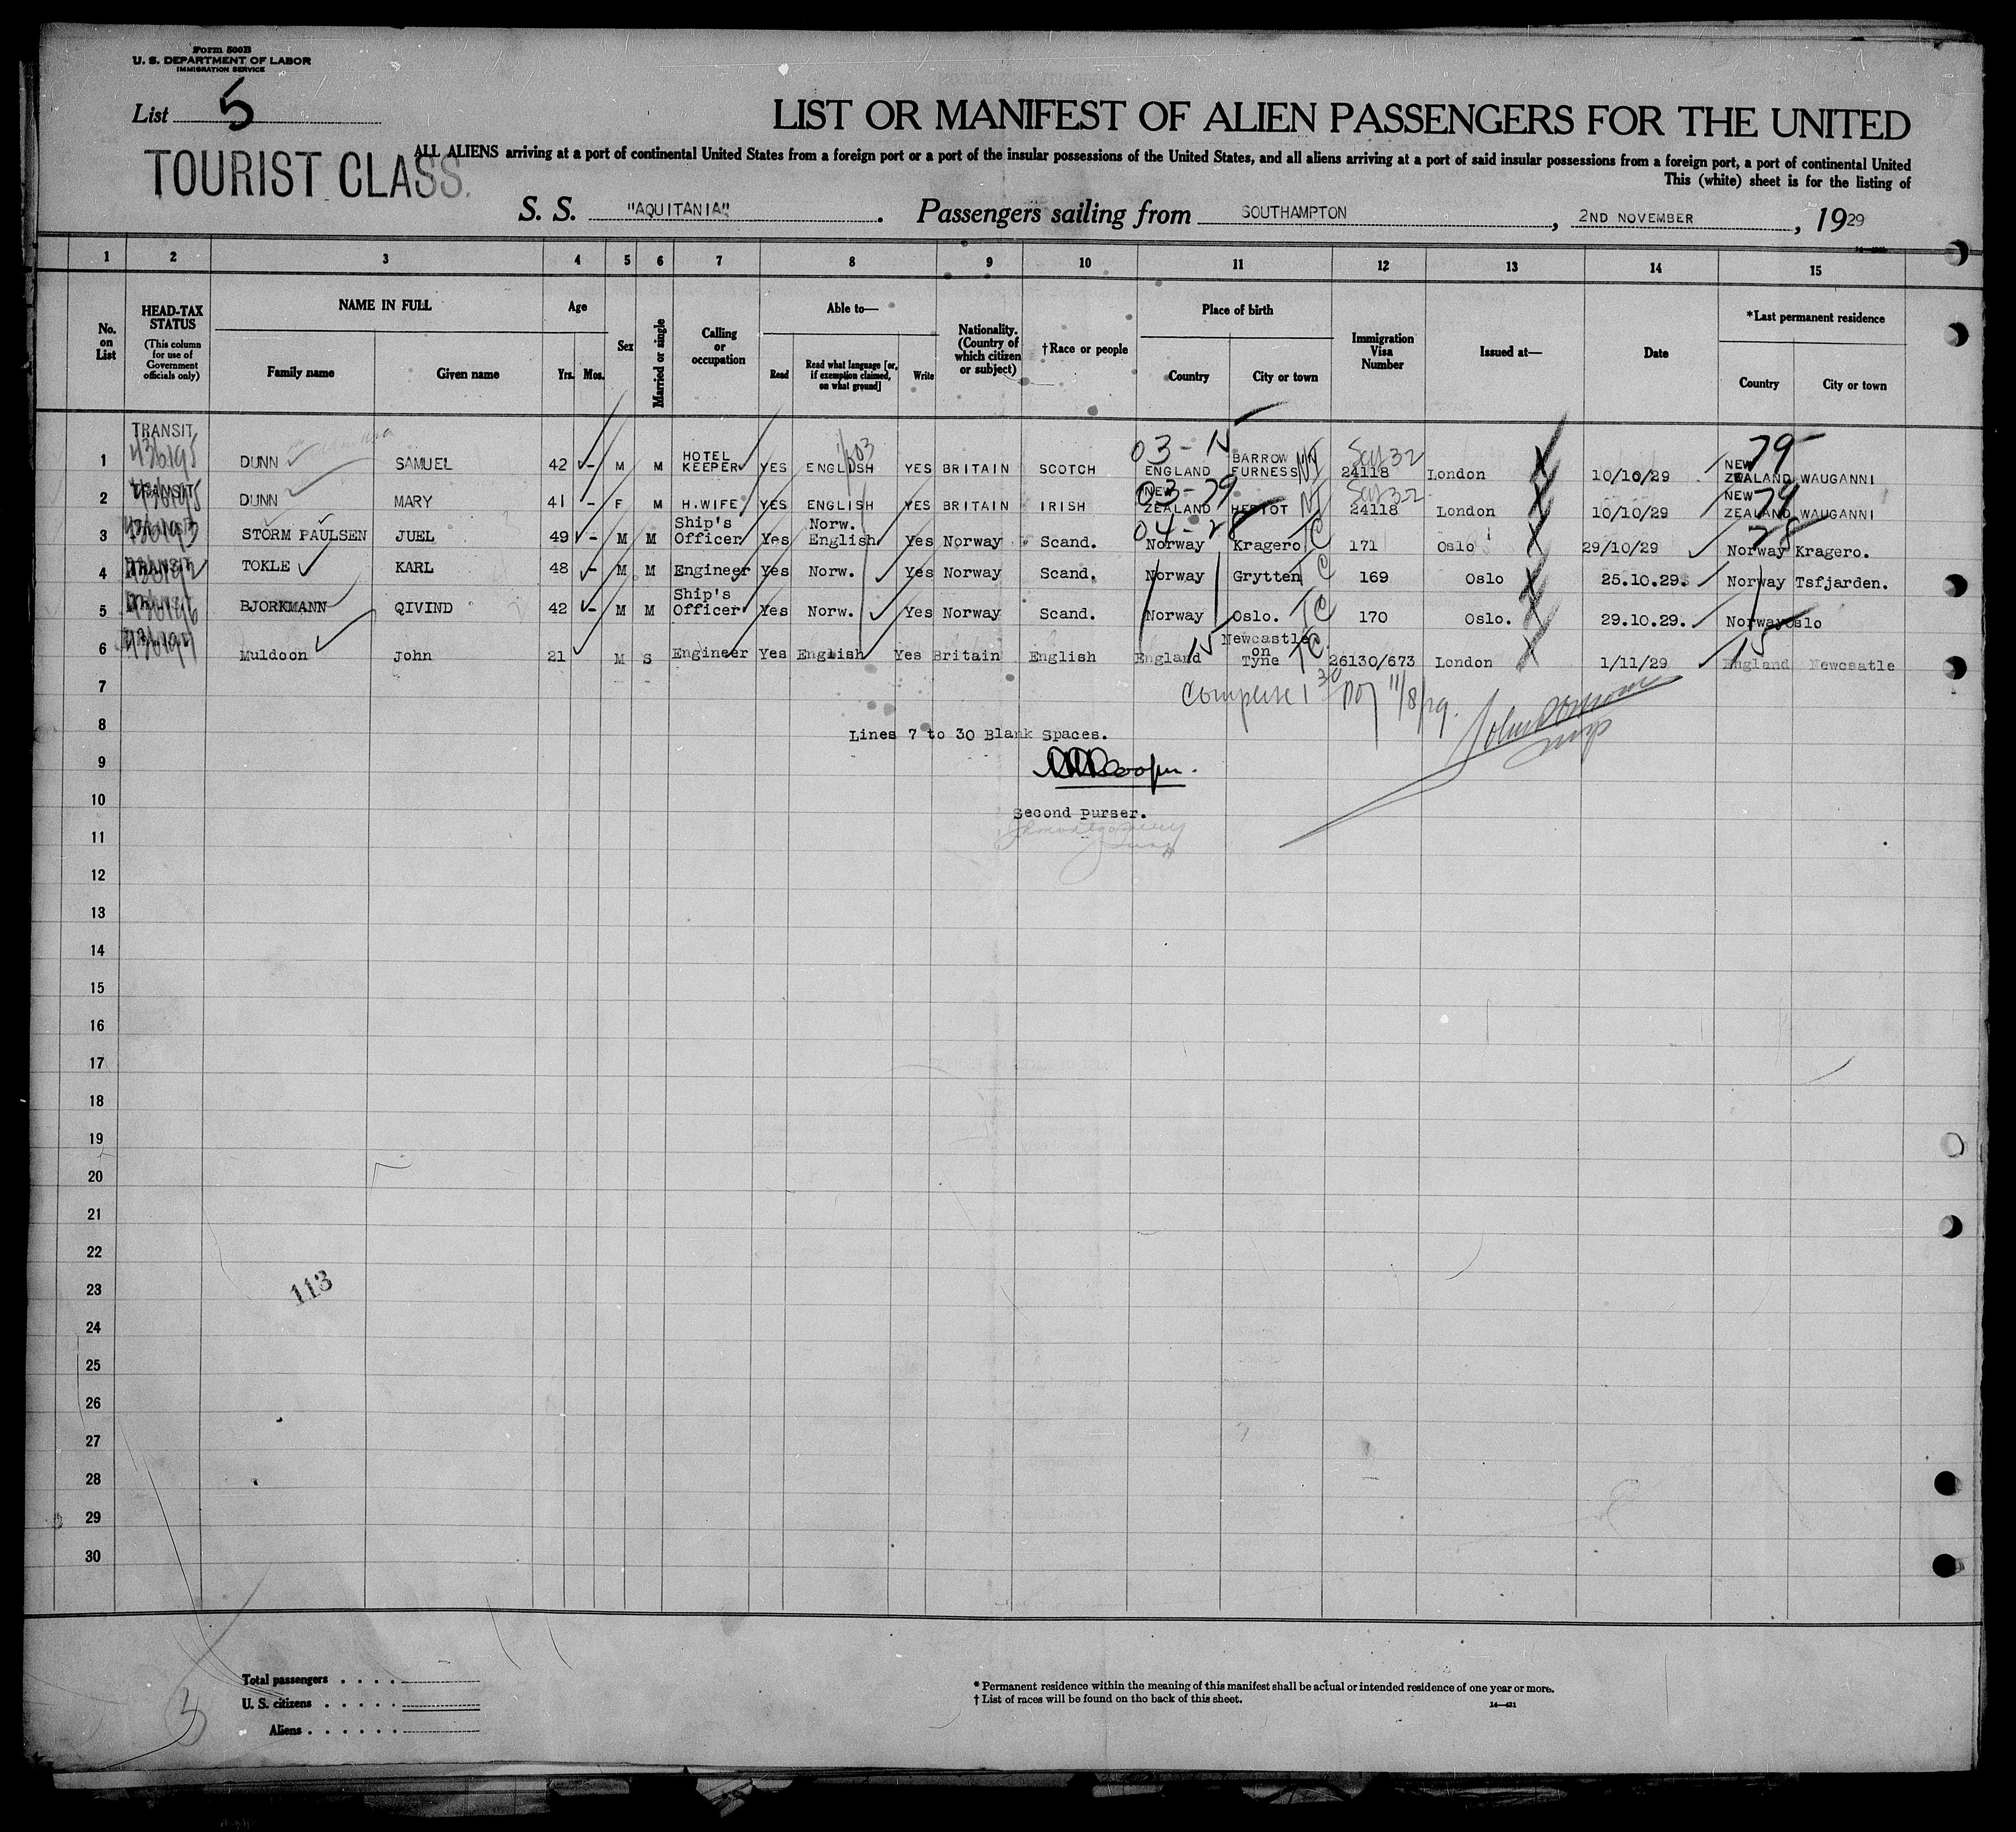 Form 500B
U. S. DEPARTMENT OF LABOR
IMMIGRATION SERVICE
List 5
LIST OR MANIFEST OF ALIEN PASSENGERS FOR THE UNITED
TOURIST CLASS.
ALL ALIENS arriving at a port of continental United States from a foreign port or a port of the insular possessions of the United States, and all aliens arriving at a port of said insular possessions from a foreign port, a port of continental United
This (white) sheet is for the listing of
S. S. "AQUITANIA". Passengers sailing from SOUTHAMPTON, 2ND NOVEMBER, 1929
1 2 3 4 5 6 7 8 9 10 11 12 13 14 15
No. on List
HEAD-TAX STATUS
(This column for use of Government officials only)
NAME IN FULL
Family name Given name
Age
Yrs. Mos.
Sex
Married or single
Calling or occupation
Able to—
Read
Read what language [or, if exemption claimed, on what ground]
Write
Nationality. (Country of which citizen or subject)
†Race or people
Place of birth
Country City or town
Immigration Visa Number
Issued at—
Date
*Last permanent residence
Country City or town
1 TRANSIT 436195 DUNN SAMUEL 42 - M M HOTEL KEEPER YES ENGLISH YES BRITAIN SCOTCH 03-15 ENGLAND BARROW IN FURNESS 24118 London 10/10/29 79 NEW ZEALAND WAUGANNI
2 TRANSIT DUNN MARY 41 - F M H.WIFE YES ENGLISH YES BRITAIN IRISH 03-79 NEW ZEALAND HERIOT 24118 London 10/10/29 79 NEW ZEALAND WAUGANNI
3 STORM PAULSEN JUEL 49 - M M Ship's Officer Yes Norw. English Yes Norway Scand. 04-28 Norway Kragero TC 171 Oslo 29/10/29 28 Norway Kragero.
4 TRANSIT TOKLE KARL 48 - M M Engineer Yes Norw. Yes Norway Scand. Norway Grytten TC 169 Oslo 25.10.29. Norway Tsfjarden.
5 BJORKMANN QIVIND 42 - M M Ship's Officer Yes Norw. Yes Norway Scand. Norway Oslo. TC 170 Oslo. 29.10.29. Norway Oslo
6 Muldoon John 21 M S Engineer Yes English Yes Britain English England 15 Newcastle on Tyne TC 26130/673 London 1/11/29 15 England Newcsatle
7
11/8/29.
8
Lines 7 to 30 Blank Spaces.
9
Cooper.
10
Second Purser.
11
12
13
14
15
16
17
18
19
20
21
22
23
113
24
25
26
27
28
29
30
Total passengers
U. S. citizens
Aliens
* Permanent residence within the meaning of this manifest shall be actual or intended residence of one year or more.
† List of races will be found on the back of this sheet.
14—421